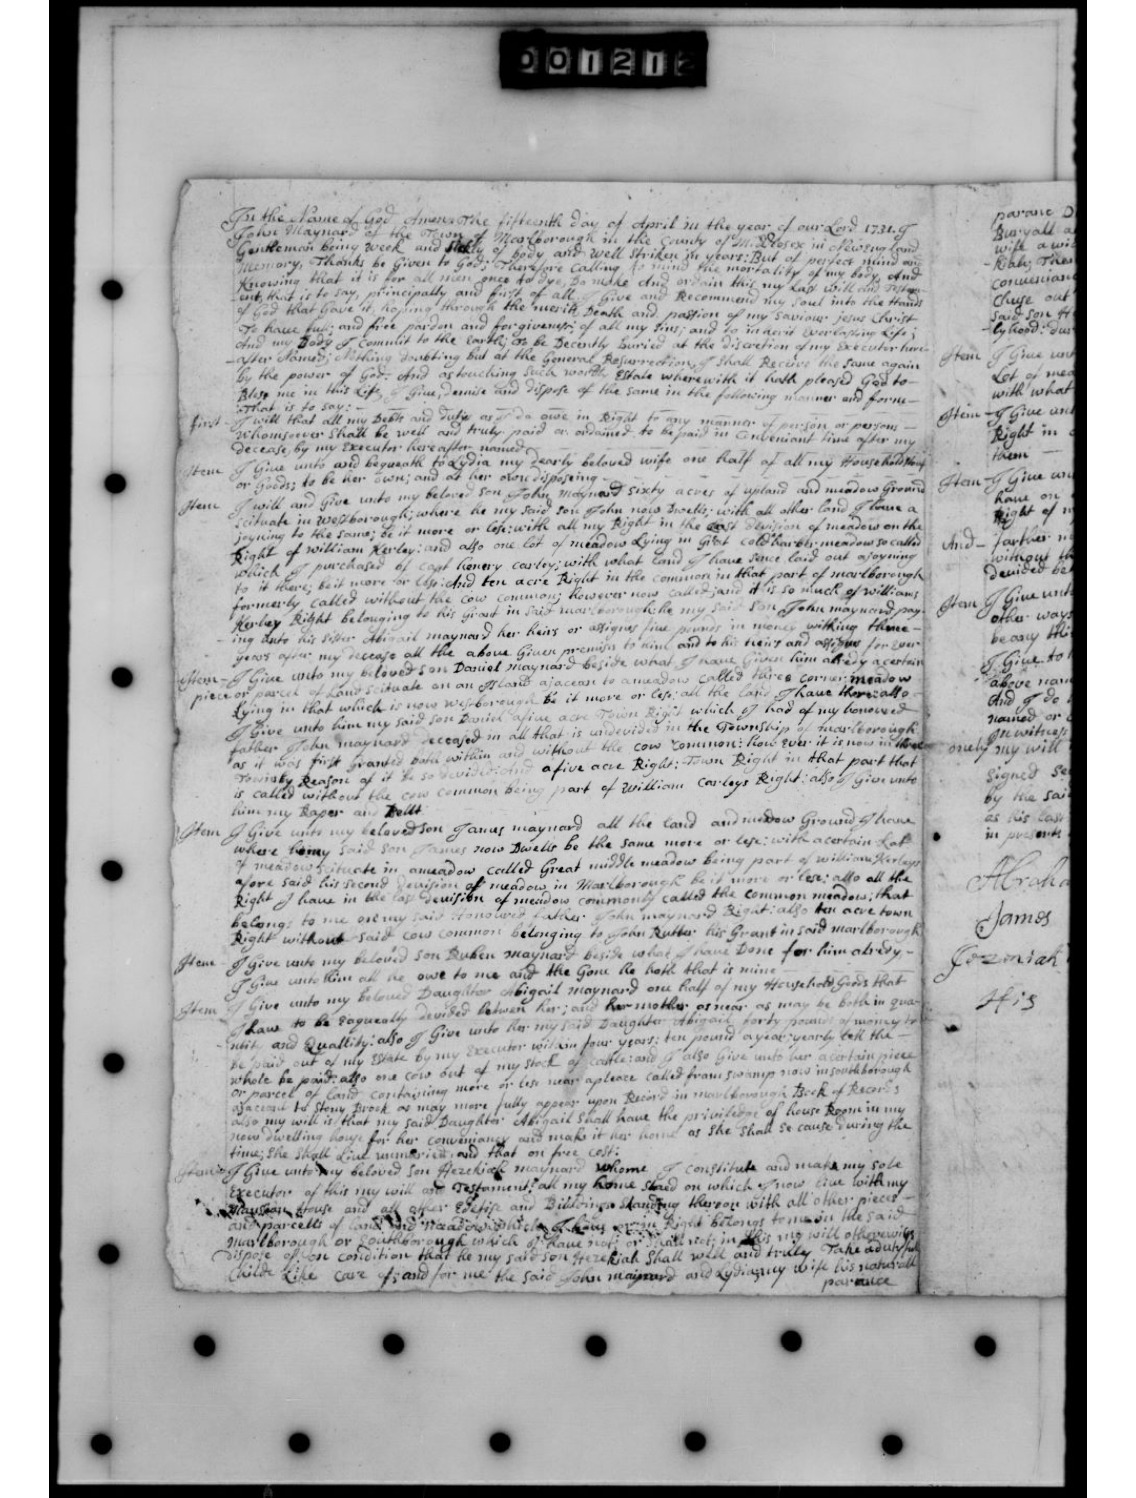 001212
In the Name of God Amen: The fifteenth day of April in the year of our Lord 1731. I
John Maynard of the Town of Marlborough in the County of Midlesex in Newengland
Gentleman being week and sickly of body and well striken in years: But of perfect mind and
Memory, Thanks be Given to God: Therefore calling to mind the mortality of my body, And
Knowing that it is for all men once to dye, Do make And ordain this my Last will And Testem-
-ent, that is to say, principally and first of all I Give and Recommend my Soul into the Hands
of God that Gave it, hoping through the merits Death and passion of my Saviour Jesus Christ
To have full; and free pardon and forgiveness; of all my Sins; and to inherit Everlasting Life;
And my Body I commit to the Earth; to be Decently Buried at the discretion of my Executor here-
-after Named; Nothing doubting but at the General Resurrection, I Shall Receive the same again
by the power of God: And as touching Such worldly Estate wherewith it hath pleased God to-
Bless me in this Life, I Give, demise and dispose of the same in the following manner and forme-
That is to say: -
first - I will that all my Debts and dutys as I do owe in Right to any manner of person or persons -
whomsoever Shall be well and truly paid or ordained to be paid in Conveniant time after my
decease by my Executor hereafter named
Item I Give unto and bequeath to Lydia my dearly beloved wife one half of all my Household
or Goods; to be her own; and at her own disposing -
Item I will and Give unto my beloved son John maynard sixty acres of upland and meadow Ground
scituate in Westborough; where he my said son John now Dwells; with all other land I have a
joyning to the same; be it more or less: with all my Right in the last devision of meadow on the
Right of william Kerley: and also one lot of meadow Lying in Great cold harbor meadow so called
which I purchased of capt henery carley; with what land I have sence laid out ajoyning
to it there; be it more or less: And ten acre Right in the common in that part of marlborough
formerly called without the cow common; however now called; and it is so much of williams
Kerley Right belonging to his Grant in said marlborough: he my said son John maynard pay-
-ing unto his sister Abigail maynard her heirs or assignes five pounds in money withing three -
years after my decease all the above Given premises to him and to his heirs and assignes for ever
Item - I Give unto my beloved son Daniel maynard beside what I have Given him alredy a certain
piece or parcel of Land scituate on an Island ajacean to a meadow called three corner meadow
Lying in that which is now westborough be it more or less; all the land I have there: also -
I Give unto him my said son Daniel a five acre Town Right which I had of my honoured
father John maynard deceased in all that is undevided in the Township of marlborough:
as it was first Granted both within and without the cow common: how ever it is now in three
Towns by Reason of it be so devided: And a five acre Right: Town Right in that part that
is called without the cow common being part of William Carleys Right: also I Give unto
him my Raper and Bellt
Item I Give unto my beloved son James maynard all the land and meadow Ground I have
where he my said son James now Dwells be the same more or less: with a certain Lott
of meadow scituate in a meadow called Great middle meadow being part of william Kerleys
afore said his second Devision of meadow in Marlborough be it more or less; also all the
Right I have in the last devision of meadow commonly called the common meadow; that
belongs to me on my said Honoured father John maynard Right: also ten acre town
Right without said cow common belonging to John Rutter his Grant in said marlborough
Item - I Give unto my beloved son Reuben maynard beside what I have Done for him alredy -
I Give unto him all he owe to me and the Gone he hath that is mine
Item I Give unto my beloved Daughter Abigail maynard one half of my Household Goods that
I have to be Eaqually devided between her; and her mother as near as may be both in quan-
-tity and Quallity: also I Give unto her my said Daughter Abigail forty pounds of money to
be paid out of my Estate by my Executor within four years; ten pound a year; yearly tell the -
whole be paid: also one cow out of my stock of cattle: and I also Give unto her a certain piece
or parcel of land containing more or less near a pleace called fram swamp now in southborough
ajacent to Stony Brook as may more fully appear upon Record in marlborough Book of Records
also my will is that my said Daughter Abigail Shall have the priviledge of house Room in my
now dwelling house for her conveniancy and make it her home as she Shall Se cause during the
time; she Shall Live unmeried; and that on free cost:
Item I Give unto my beloved son Hezekiah maynard whome I constitute and make my sole
Executor of this my will and Testament; all my home stead on which I now Live with my
Mansion House and all other Edefise and Buildings Standing theron with all other pieces -
and parcells of land and meadow which I have or in Right belongs to me in the said
marlborough or Southborough which I have not; or Shall not; in this my will otherewise
dispose of on condition that he my said son Hezekiah Shall well and trully Take a dutyfull
Childe Like care of; and for me the said John maynard and Lydia my wife his naturall
parance
parance D
Buryall a
wife a wid
-kiah; Then
convenian
Chuse out
said son H
-lyhood: dur
Item I Give unt
Lot of mea
with what
Item - I Give unt
Right in
them -
Item - I Give un
have on
Right of m
And - farther
without th
devided be
Item I Give unt
other ways
be any thi
I Give to
above nam
And I do
named or
In witness
only my will
signed se
by the said
as his last
in presents
Abraha
James
Jeremiah
His